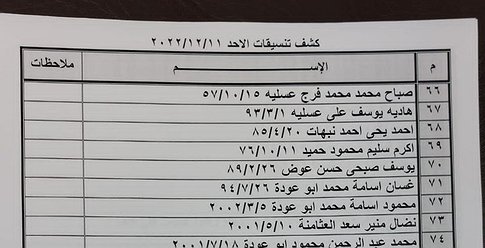 كشف تنسيقات الاحد ٢٠٢٢/١٢/١١
م الإســـــم ملاحظات
٦٦ صباح محمد محمد فرج عسليه ٥٧/١٠/١٥
٦٧ هاديه يوسف على عسليه ٩٣/٣/١
٦٨ احمد يحى احمد نبهات ٨٥/٤/٢٠
٦٩ اكرم سليم محمود حميد ٧٦/١٠/١١
٧٠ يوسف صبحى حسن عوض ٨٩/٢/٢٦
٧١ غسان اسامة محمد ابو عودة ٩٤/٧/٢٦
٧٢ محمود اسامة محمد ابو عودة ٢٠٠٢/٣/٥
٧٣ نضال منير سعد العثامنة ٢٠٠١/٥/١٠
٧٤ محمد عبد الرحمن محمود ابو عودة ٢٠٠١/٧/١٨